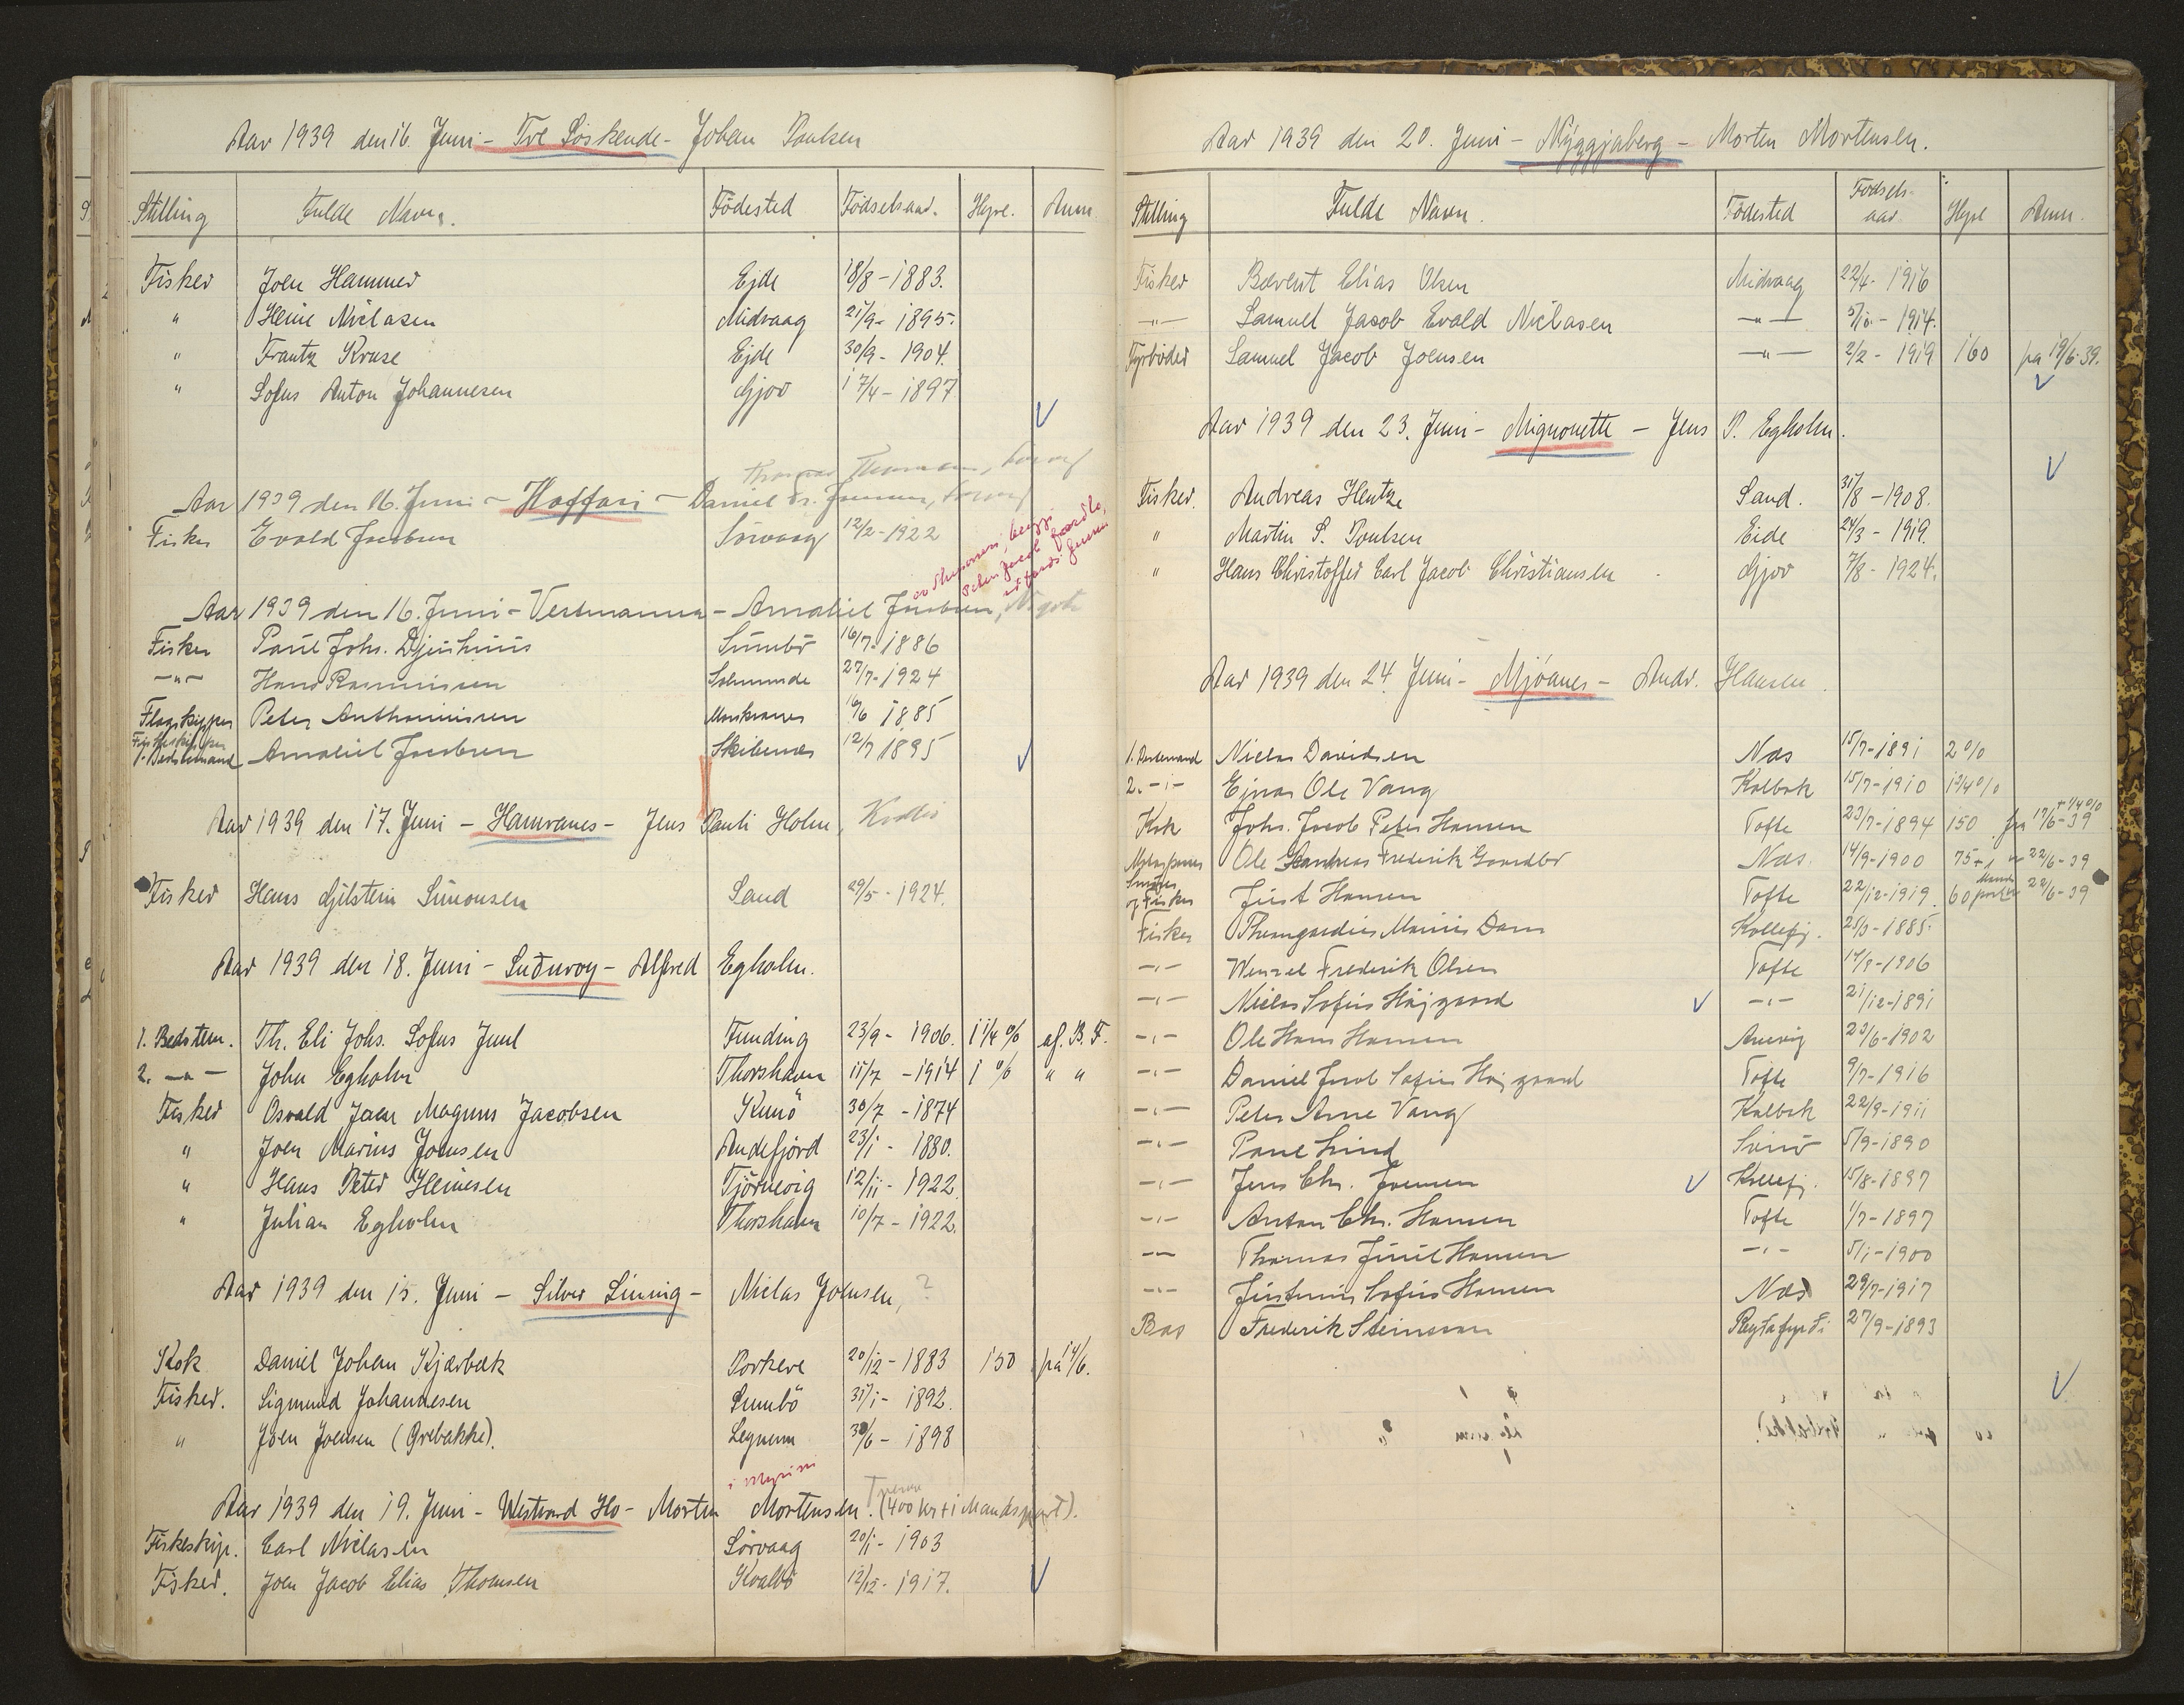 Aar 1939 den 16. Juni - Tre Söskende - Johan Poulsen
Stilling Fulde Navn. Födested Födselsaar. Hyre. Anm.
Fisker Joen Hammer Ejde 18/8 - 1883.
" Heine Niclasen Midvaag 21/9 - 1895.
" Frantz Kruse Ejde 30/9 - 1904.
" Sofus Anton Johannesen Gjov 17/4 - 1897
Thomas Thomsen,
Aar 1939 den 16. Juni - Hoffari - Daniel
Fisker Evald Jacobsen Sörvaag 12/2 - 1922
Aar 1939 den 16. Juni - Vestmanna - Arnaliel Jacobsen,
Fisker Paul Johs. Djurhuus Sumbö 16/7 - 1886
-"- Hans Rasmussen 27/7 - 1924
Flagskipper Peter Anthoniussen 1885
Fiskeskipper
1. Bedstemand Arnaliel Jacobsen Skibenes 12/7 1895
Aar 1939 den 17. Juni - Hamranes - Jens Pauli Holm,
Fisker Hans Gilstein Simonsen Sand 29/5 - 1924.
Aar 1939 den 18. Juni - Suduroy - Alfred Egholm.
1. Bedstem. Th. Eli Johs. Sofus Juul Funding 23/9 - 1906. 1 1/4 % af. B. F.
2. -"- John Egholm Thorshavn 11/7 - 1914 1 % " "
Fisker Osvald Joen Magnus Jacobsen Kunö 30/7 - 1874
" Joen Marius Joensen Andefjord 23/1 - 1880.
" Hans Peter Heinesen Tjörnevig 12/11 - 1922.
" Julian Egholm Thorshavn 10/7 - 1922.
Aar 1939 den 15. Juni - Silver Lining - Niclas Joensen, ?
Kok Daniel Johan Kjærbæk Porkere 20/12 - 1883 150 på 14/6.
Fisker. Sigmund Johannesen Sumbö 31/1 - 1892.
" Joen Joensen (Grebakke). 30/6 - 1898
Aar 1939 den 19. Juni - Westward Ho - Morten Mortensen. (400 kr + 1 Mandspart).
Fiskeskip. Carl Niclasen Sörvaag 20/1 - 1903
Fisker. Joen Jacob Elias Thomsen Kvalbö 12/12 - 1917.
Aar 1939 den 20. Juni - Nýggjaberg - Morten Mortensen.
Stilling Fulde Navn. Födested Födsels-aar Hyre Anm.
Fisker Berent Elias Olsen Midvaag 22/4 - 1916
-"- Samuel Jacob Evald Niclasen -"- 5/10 - 1914.
Fyrböder Samuel Jacob Joensen -"- 2/2 - 1919 160 på 19/6-39.
Aar 1939 den 23. Juni - Mignonette - Jens P. Egholm.
Fisker. Andreas Hentze Sand. 31/8 - 1908.
" Martin S. Poulsen Eide 24/3 - 1919.
" Hans Christoffer Carl Jacob Christiansen Gjov 7/8 - 1924.
Aar 1939 den 24. Juni - Mjóanes - Andr. Hansen.
1. Bestemand Niclas Davidsen Næs 15/7 - 1891 2 %
2. -"- Ejnar Ole Vang Kolbak 15/7 - 1910 1 3/4 %
Kok Johs. Jacob Peter Hansen Tofte 23/7 - 1894 150 + 1/4 % fra 17/6-39
Ole Frederik Næs. 14/9 - 1900 75 + 22/6-39
og Fisker Just Hansen Tofte 22/12 - 1919. 60 22/6-39
Fisker Dam Kollefj. 1885
-"- Wenzel Frederik Olsen Tofte 1906
-"- Niclas Sofus Højgaard -"- 21/12 - 1891
-"- Ole Hans Hansen 23/6 - 1902
-"- Daniel Jacob Sofus Højgaard Tofte 9/7 - 1916
-"- Peter Arne Vang Kolbak 22/9 - 1911
-"- Paul Lind 5/9 - 1890
-"- Jens Chr. Joensen Kollefj. 15/8 - 1897
-"- Anton Chr. Hansen Tofte 1/7 - 1897
-"- Thomas Juul Hansen -"- 5/1 - 1900
-"- Justinus Sofus Hansen Næs 29/7 - 1917
Bas Frederik Steinsson 27/9 - 1893